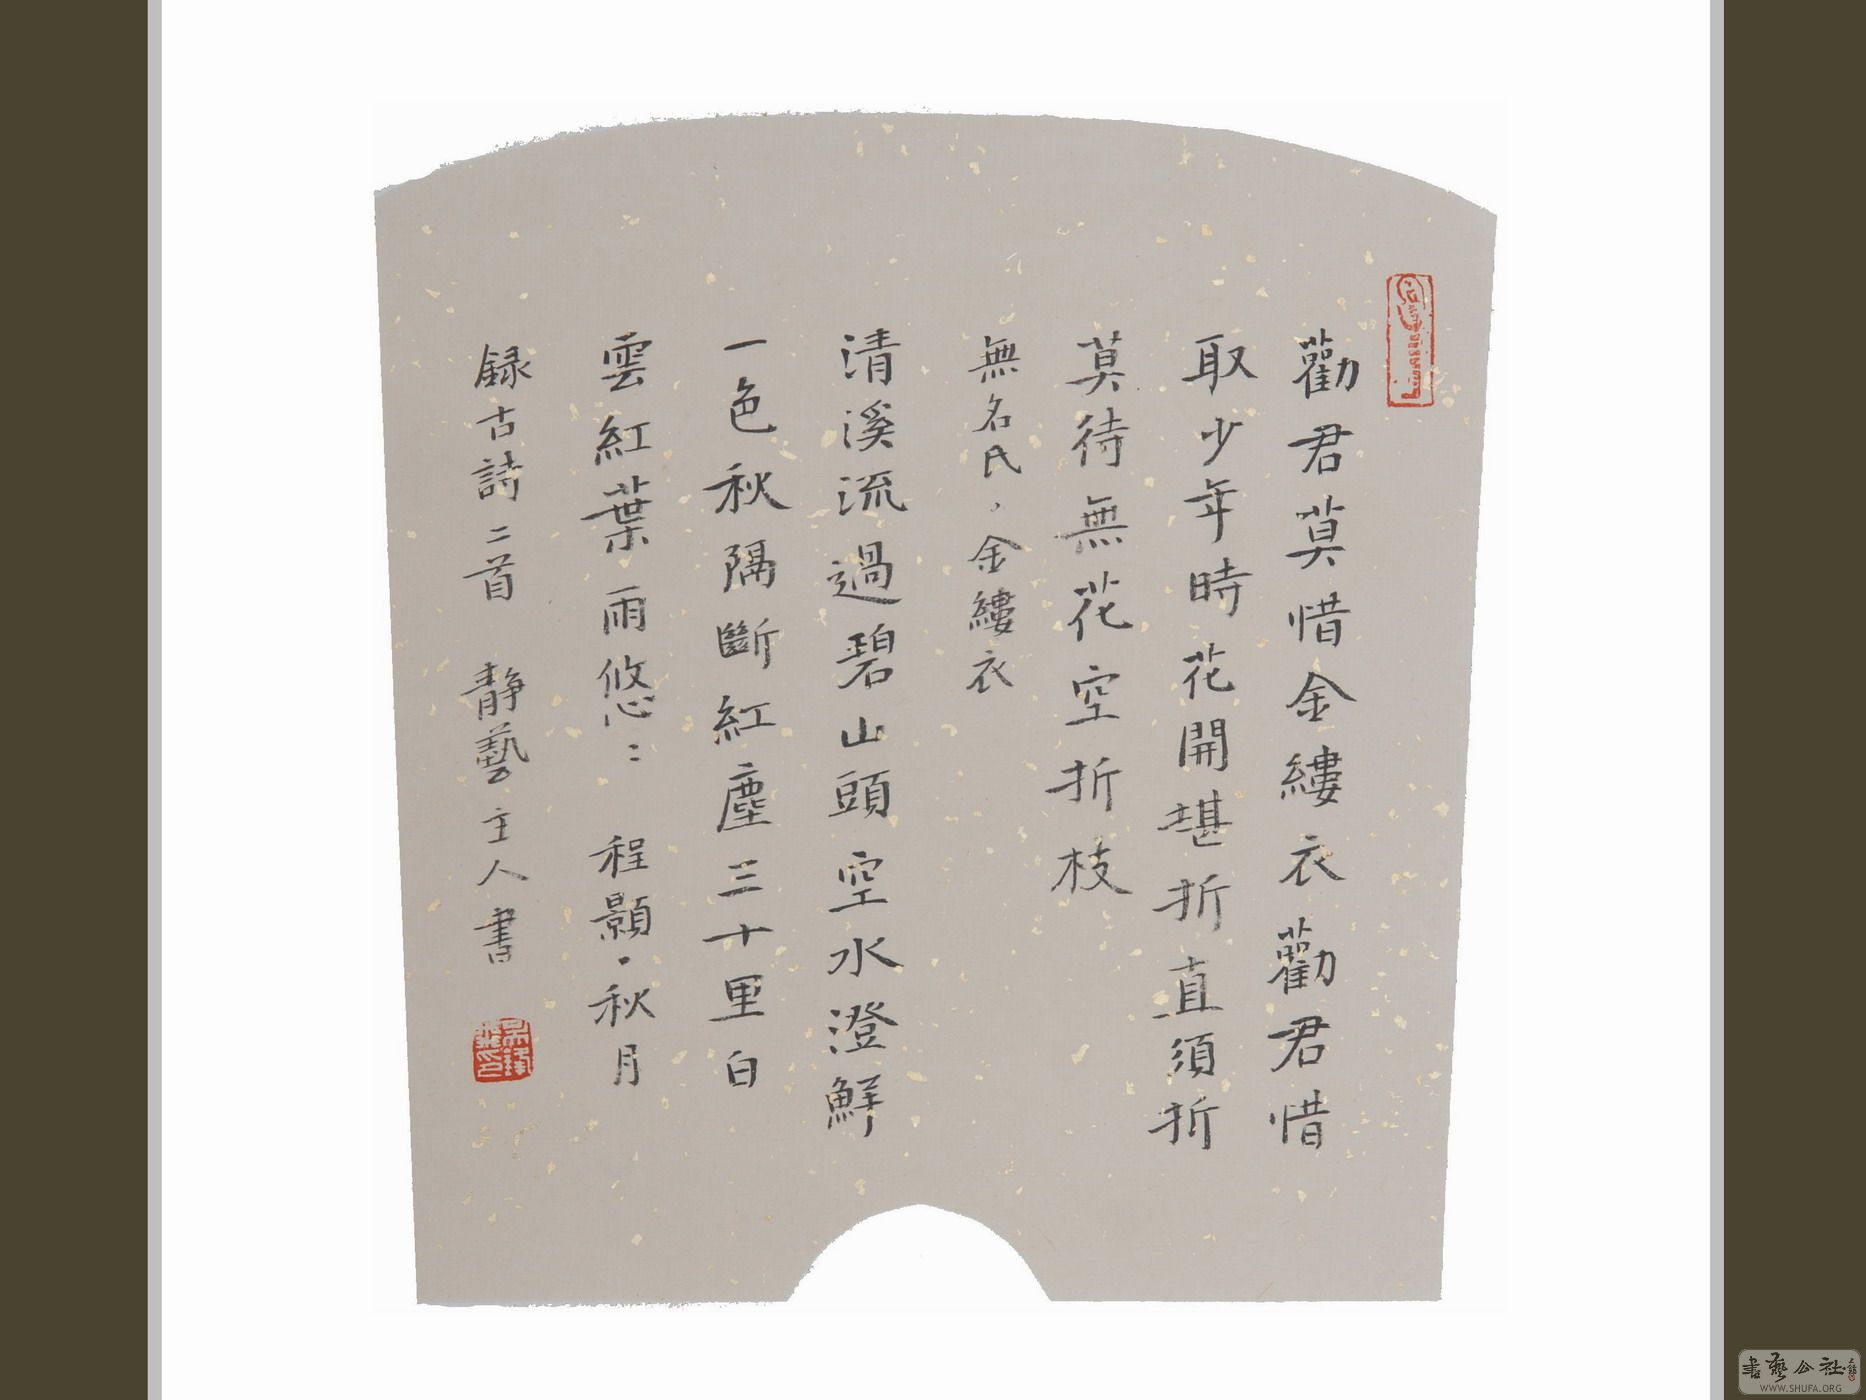 勸君莫惜金縷衣勸君惜
取少年時花開堪折直須折
莫待無花空折枝
無名氏，金縷衣
清溪流過碧山頭空水澄鮮
一色秋隔斷紅塵三十里白
雲紅葉雨悠：程顥·秋月
録古詩二首 靜藝主人書
書藝公社
WWW.SHUFA.ORG